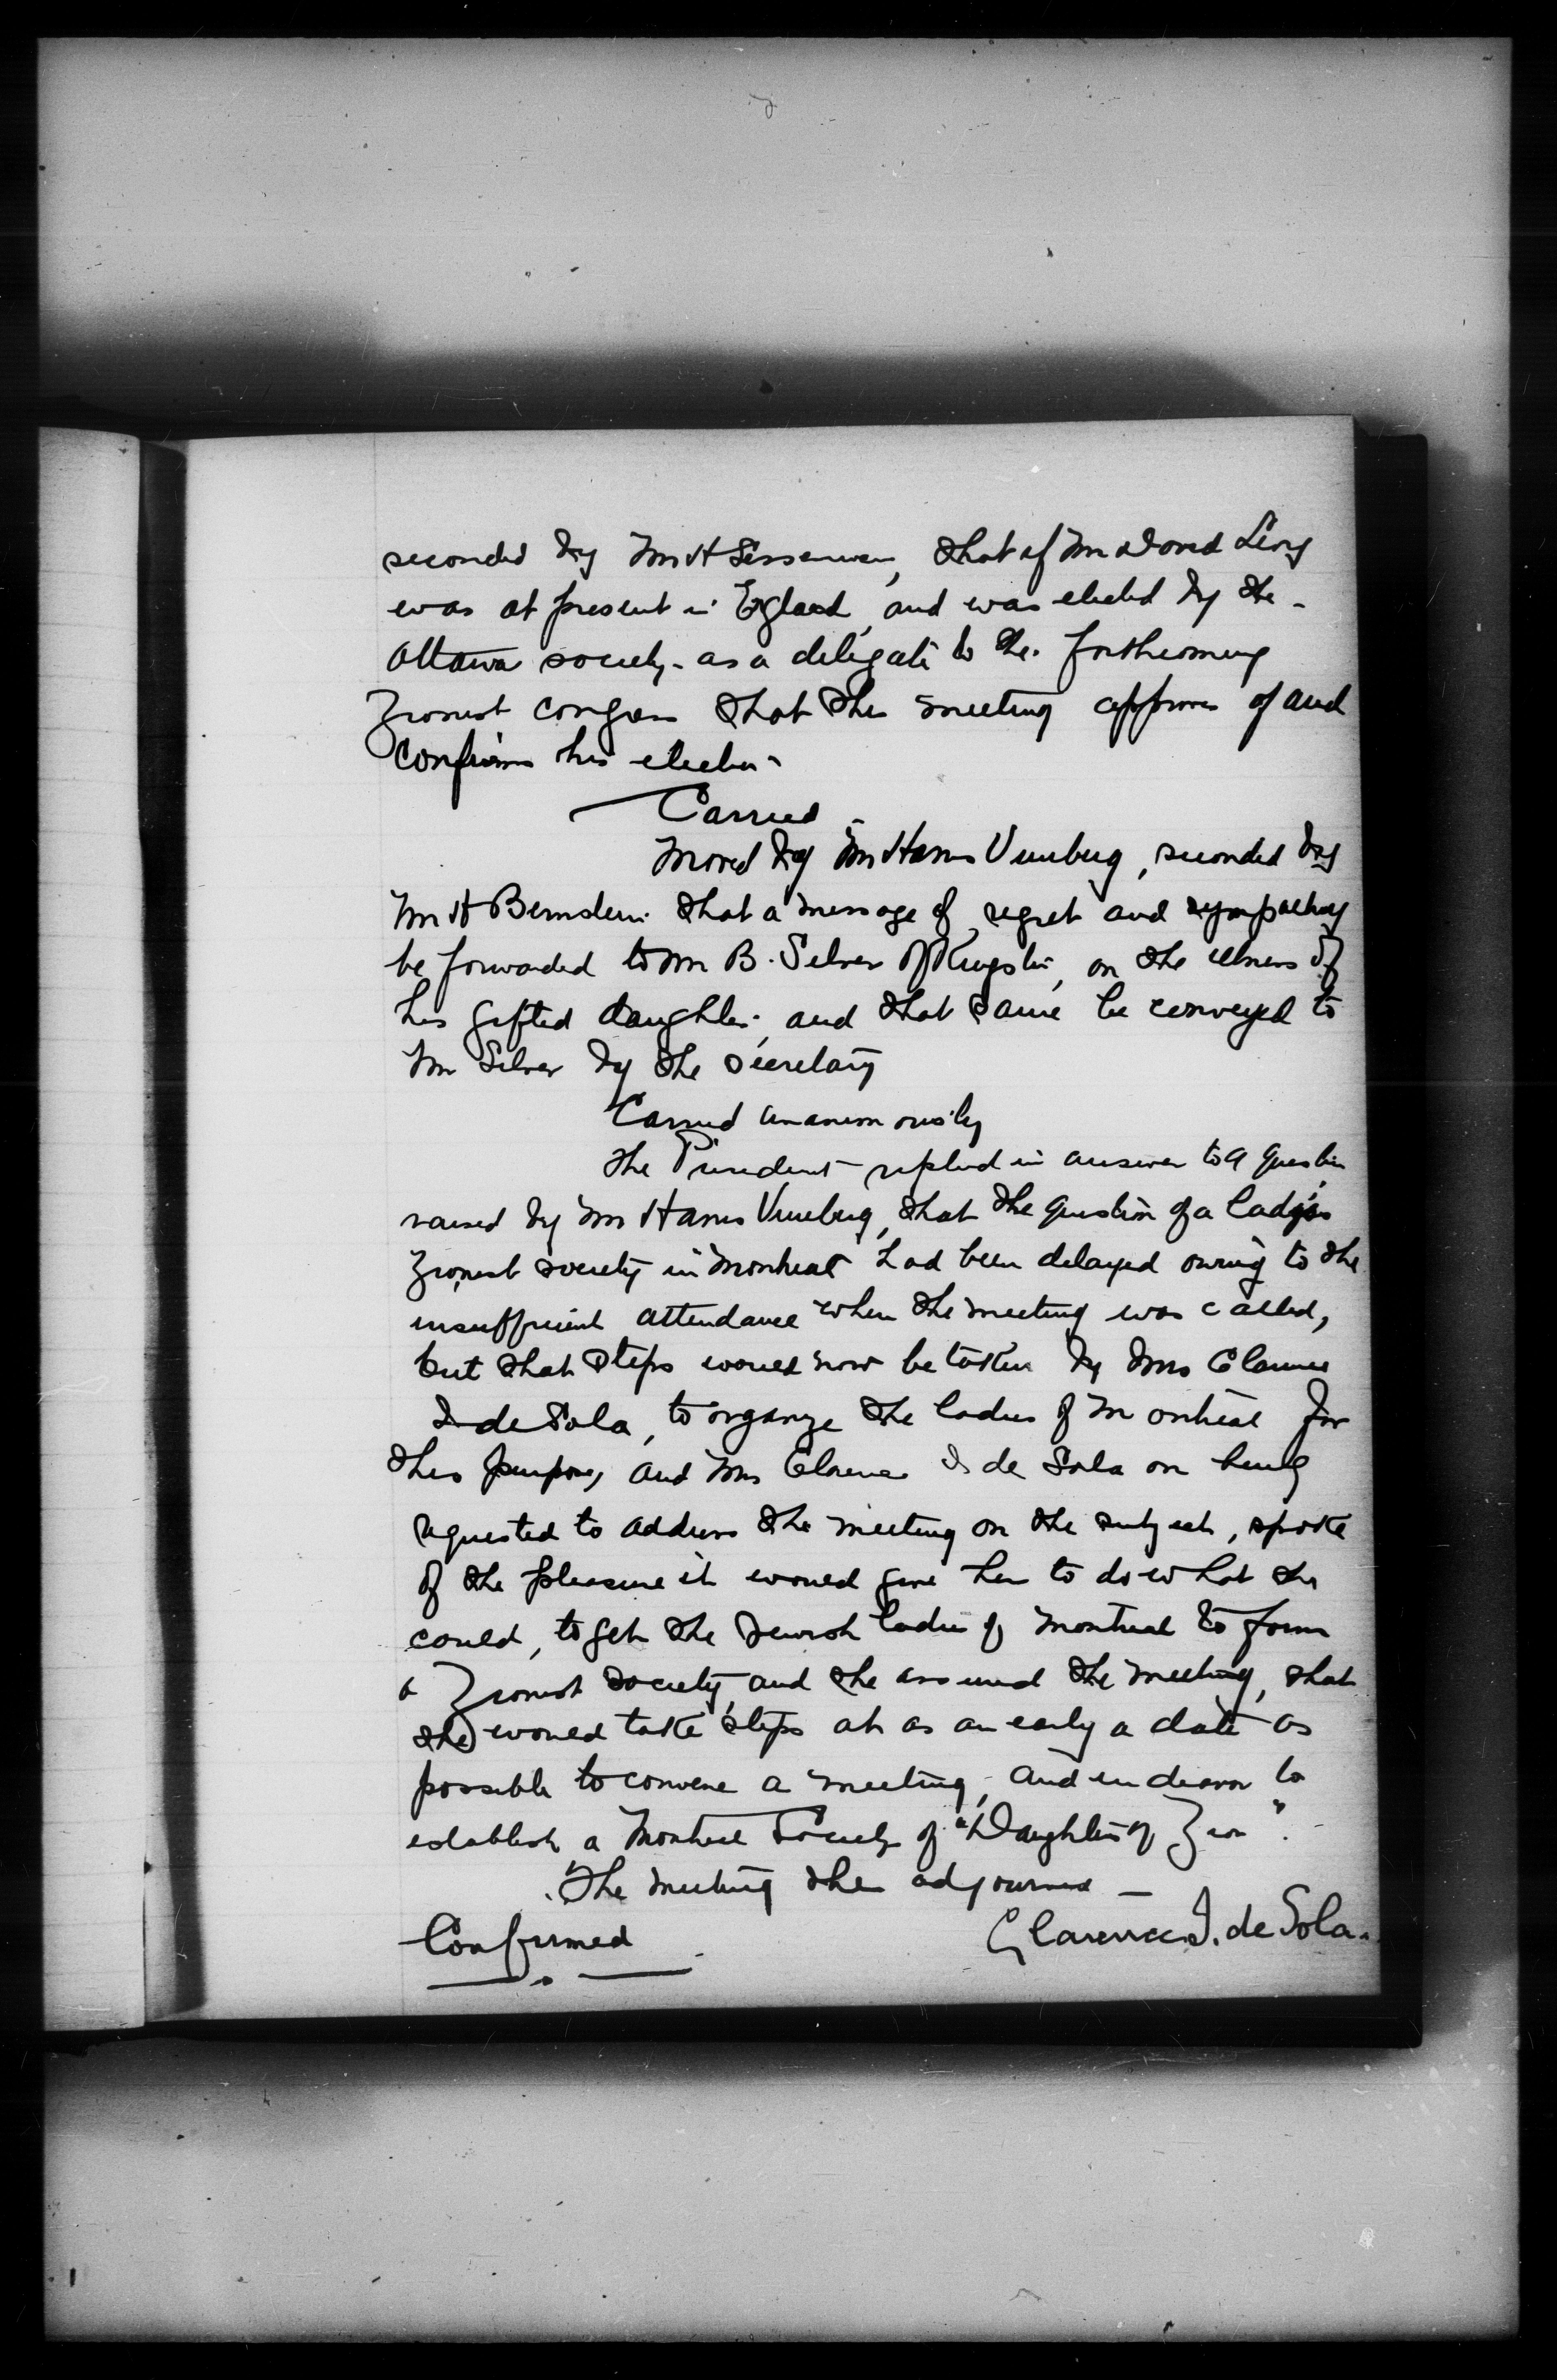 seconded by Mr H Sessenwein, that if Mr David Levy
was at present in England, and was elected by the
Ottawa society as a delegate to the forthcoming
Zionist congress that this meeting approves of and
confirms his election
Carried
Moved by Mr Harris Vineberg, seconded by
Mr H Bernstein that a message of regret and sympathy
be forwarded to Mr B. Silver of Kingston, on the illness of
his gifted daughter, and that same be conveyed to
Mr Silver by the secretary
Carried unanimously
The President replied in answer to a question
raised by Mr Harris Vineberg, that the question of a ladys
Zionist society in Montreal had been delayed owing to the
insufficient attendance when the meeting was called,
but that steps would now be taken by Mrs Clarence
I de Sola, to organize the ladies of Montreal for
this purpose, and Mrs Clarence I. de Sola on being
requested to address the meeting on the subject, spoke
of the pleasure it would give her to do what she
could, to get the Jewish ladies of Montreal to form
a Zionist society, and she assured the meeting, that
she would take steps at as an early a date as
possible to convene a meeting, and endeavor to
establish a Montreal Society of "Daughters of Zion".
The meeting then adjourned —
Confirmed Clarence I. de Sola.